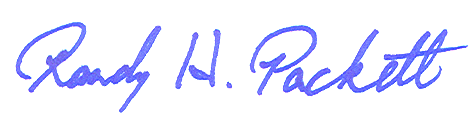 Randy H. Packett